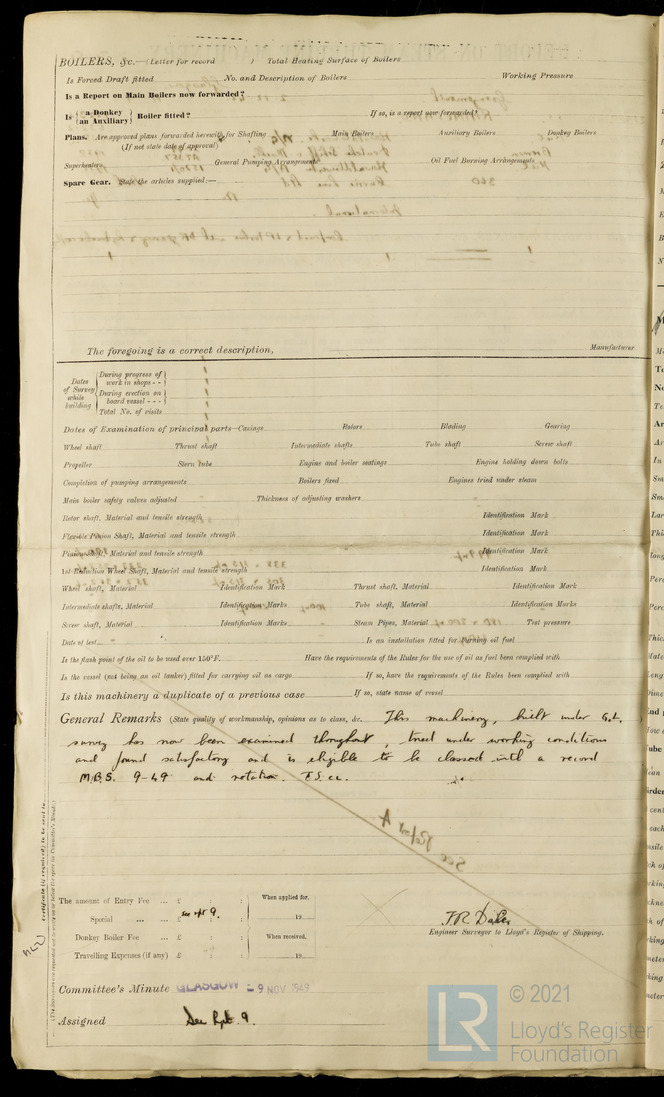 BOILERS, &c.—(Letter for record ) Total Heating Surface of Boilers
Is Forced Draft fitted No. and Description of Boilers Working Pressure
Is a Report on Main Boilers now forwarded?
Is { a Donkey / an Auxiliary } Boiler fitted? If so, is a report now forwarded?
Plans. Are approved plans forwarded herewith for Shafting Main Boilers Auxiliary Boilers Donkey Boilers
(If not state date of approval)
Superheaters General Pumping Arrangements Oil Fuel Burning Arrangements
Spare Gear. State the articles supplied:—
The foregoing is a correct description,
Manufacturer
Dates of Survey while building
During progress of work in shops - -
During erection on board vessel - - -
Total No. of visits
Dates of Examination of principal parts—Casings Rotors Blading Gearing
Wheel shaft Thrust shaft Intermediate shafts Tube shaft Screw shaft
Propeller Stern tube Engine and boiler seatings Engine holding down bolts
Completion of pumping arrangements Boilers fixed Engines tried under steam
Main boiler safety valves adjusted Thickness of adjusting washers
Rotor shaft, Material and tensile strength Identification Mark
Flexible Pinion Shaft, Material and tensile strength Identification Mark
Pinion shaft, Material and tensile strength Identification Mark
1st Reduction Wheel Shaft, Material and tensile strength Identification Mark
Wheel shaft, Material Identification Mark Thrust shaft, Material Identification Mark
Intermediate shafts, Material Identification Marks Tube shaft, Material Identification Marks
Screw shaft, Material Identification Marks Steam Pipes, Material Test pressure
Date of test Is an installation fitted for burning oil fuel
Is the flash point of the oil to be used over 150°F. Have the requirements of the Rules for the use of oil as fuel been complied with
Is the vessel (not being an oil tanker) fitted for carrying oil as cargo If so, have the requirements of the Rules been complied with
Is this machinery a duplicate of a previous case If so, state name of vessel
General Remarks (State quality of workmanship, opinions as to class, &c. This machinery, built under G.L.
survey has now been examined throughout, tried under working conditions
and found satisfactory and is eligible to be classed with a record
M.B.S. 9-49 and notation. T.S. CL.
The amount of Entry Fee ... £ : :
Special ... ... £ see rpt 9. :
Donkey Boiler Fee ... £ : :
Travelling Expenses (if any) £ : :
When applied for,
19
When received,
19
Engineer Surveyor to Lloyd's Register of Shipping.
Committee's Minute GLASGOW - 9 NOV 1949
Assigned See Rpt. 9.
LR © 2021
Lloyd's Register
Foundation